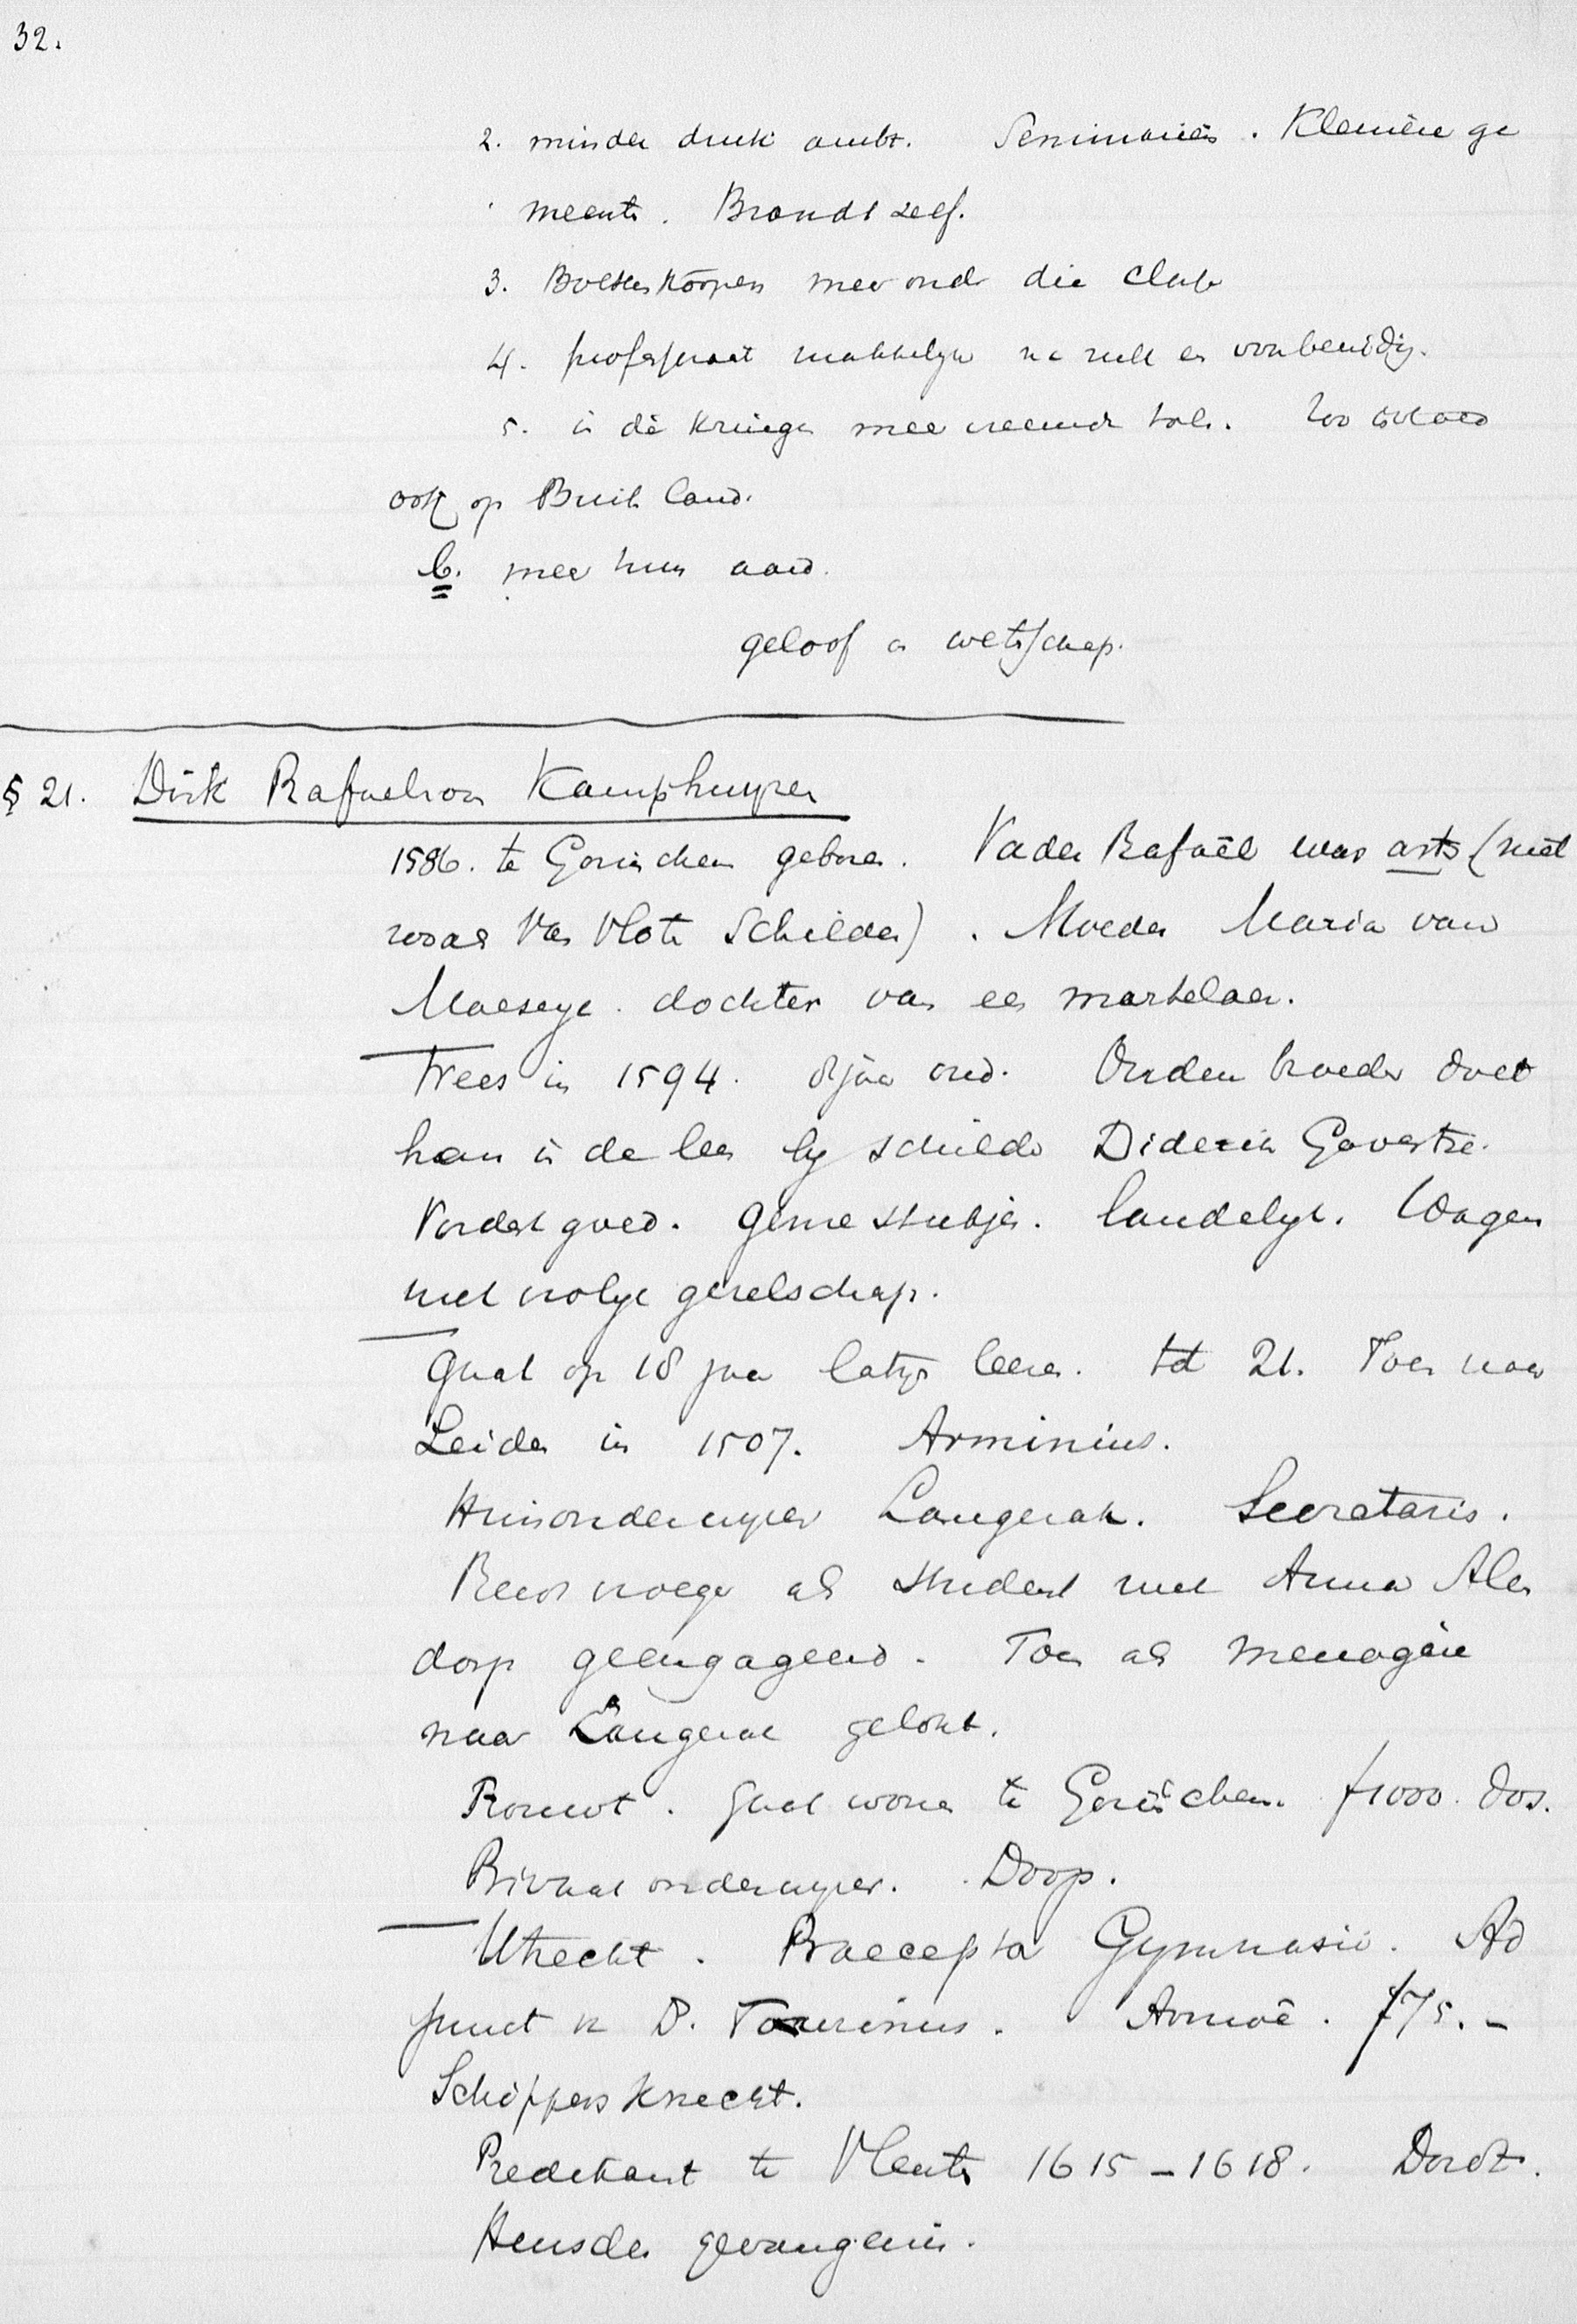 32.
2. minder druk ambt. Seminariës. Kleinere ge
meente. Brandt zelf.
3. Boetserkoopers meer onder die club
4. professoraat makkelijker na rust en voorbereidig.
5. in die kringen meer vreemde talen. Zoo invloed
ook op Buitenland.
b. meer hun aard.
geloof en wetensschap.
§ 21. Dirk Rafaelszoon Kamphuyzen
1586. te Gorinchem geboren. Vader Rafaël was arts (niet
zooals Van Vloten Schilder). Moeder Maria van
Maeseyc. dochter van een martelaar.
Wees in 1594. 8 jaar oud. Oudere broeder doet
hem in de leer bij schilder Diderick Govertsz.
Vordert goed. Genre stukjes. landelijk. Wagen
met vrolijk gezelschap.
Gaat op 18 jaar latijn leeren. tot 21. Toen naar
Leiden in 1507. Arminius.
Huisonderwijzer Langerak. Secretaris.
Reeds vroeger als student met Anna Alen
dorp geëngageerd. Toen als menagère
naar Langerak gelokt.
Trouwt. Gaat wonen te Gorinchem. f1000. dos.
Privaat onderwijzer. Doop.
Utrecht. Praeceptor Gymnasio. Ad
junct v D. Taurinus. Armoê. f75.-
Schippersknecht.
Predikant te Vleuten 1615-1618. Dordt.
Heusden gevangenis.